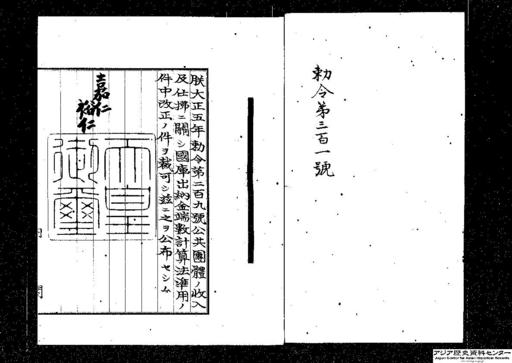 勅令第三百一號
朕大正五年勅令第二百九號公共團體ノ收入
及仕拂ニ關シ國庫出納金端數計算法準用ノ
件中改正ノ件ヲ裁可シ玆ニ之ヲ公布セシム
嘉仁
裕仁
天皇
御璽
内
閣
アジア歴史資料センター
Japan Center for Asian Historical Records